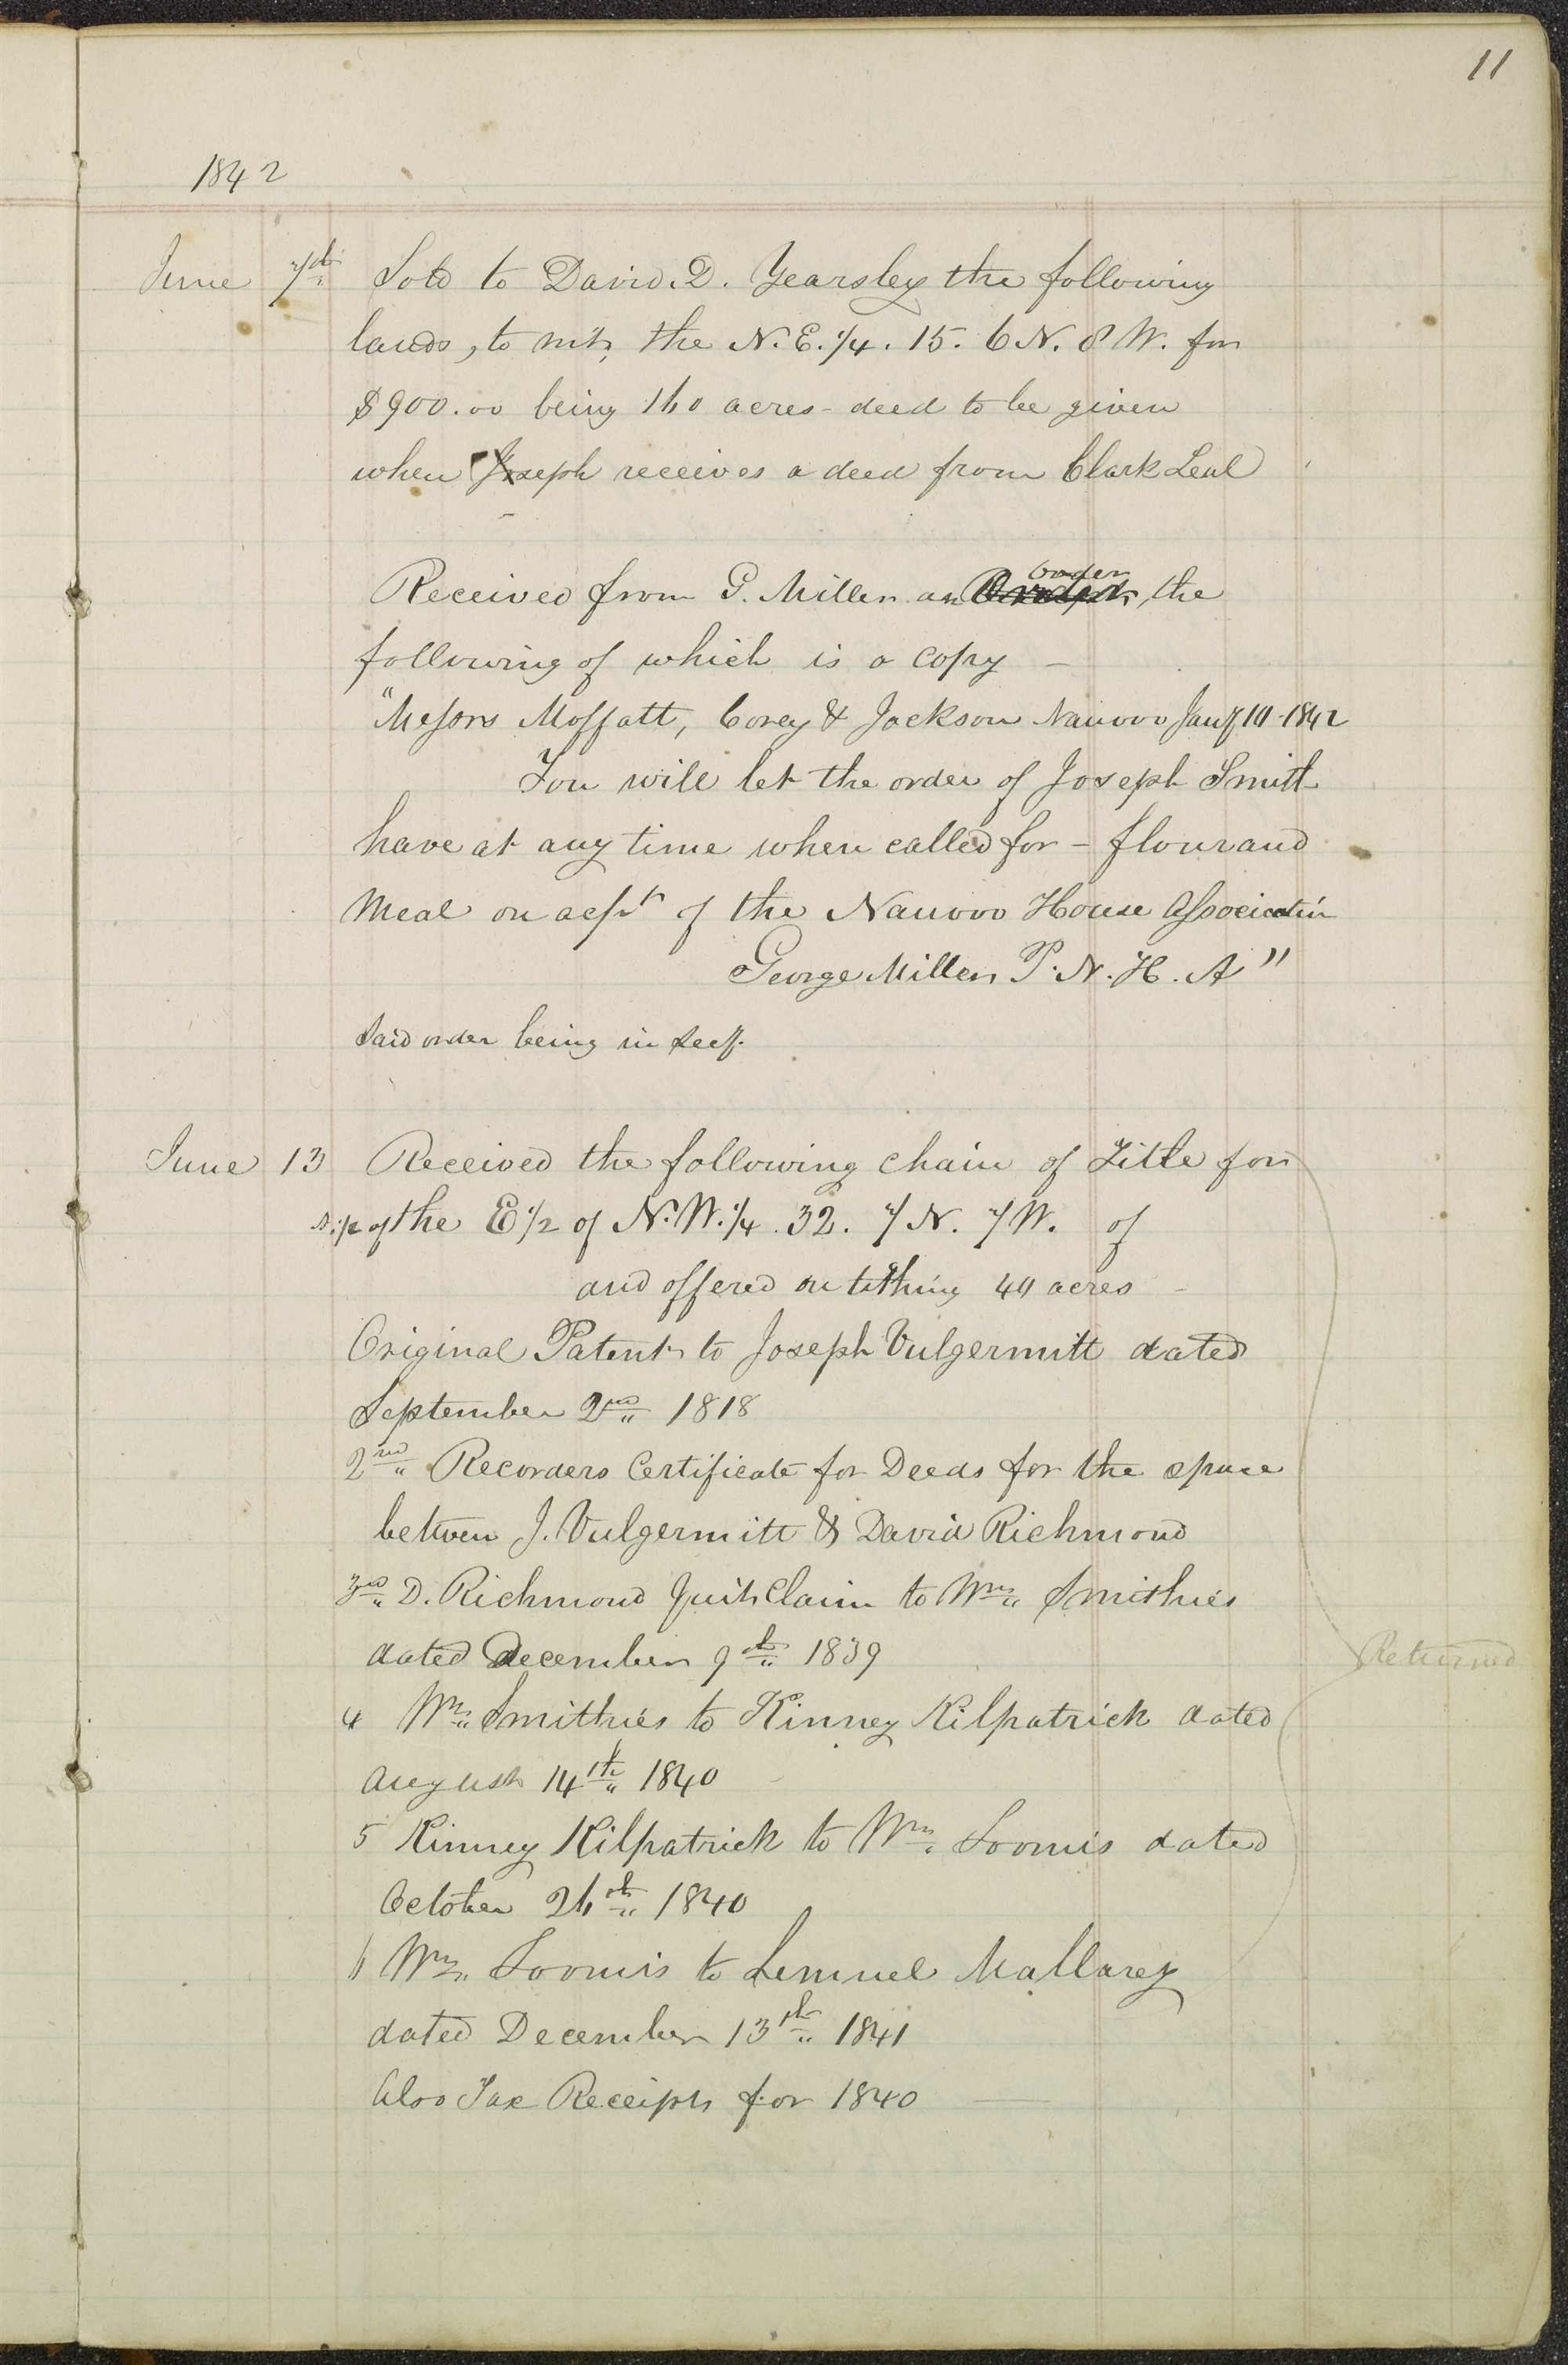 11
1842
June 7th Sold to David. D. Yearsley the following
lands, to wit, the N.E. 1/4. 15. 6 N. 8 W. for
$900.00 being 160 acres - deed to be given
when Joseph receives a deed from Clark Leal
Received from G. Miller an order the
following of which is a copy -
"Messrs Moffatt, Covey & Jackson Nauvoo Jany 10 - 1842
You will let the order of Joseph Smith
have at any time when called for - flour and
Meal on acpt of the Nauvoo House Association
George Miller P. N. H. A"
Said order being in
June 13 Received the following chain of Title for
S. 1/2 of the E 1/2 of N. W. 1/4. 32. 7 N. 7 W. of
and offered on tithing 40 acres -
Original Patent to Joseph Vulgermitt dated
September 2nd 1818
2nd Recorders Certificate for Deeds for the space
between J. Vulgermitt & David Richmond
3rd D. Richmond Quit Claim to Wm Smithies
dated December 9th 1839
Returned
4 Wm Smithies to Kinney Kilpatrick dated
August 14th 1840
5 Kinney Kilpatrick to Wm Loomis dated
October 26th 1840
6 Wm Loomis to Lemuel Mallarey
dated December 13th 1841
Also Tax Receipts for 1840